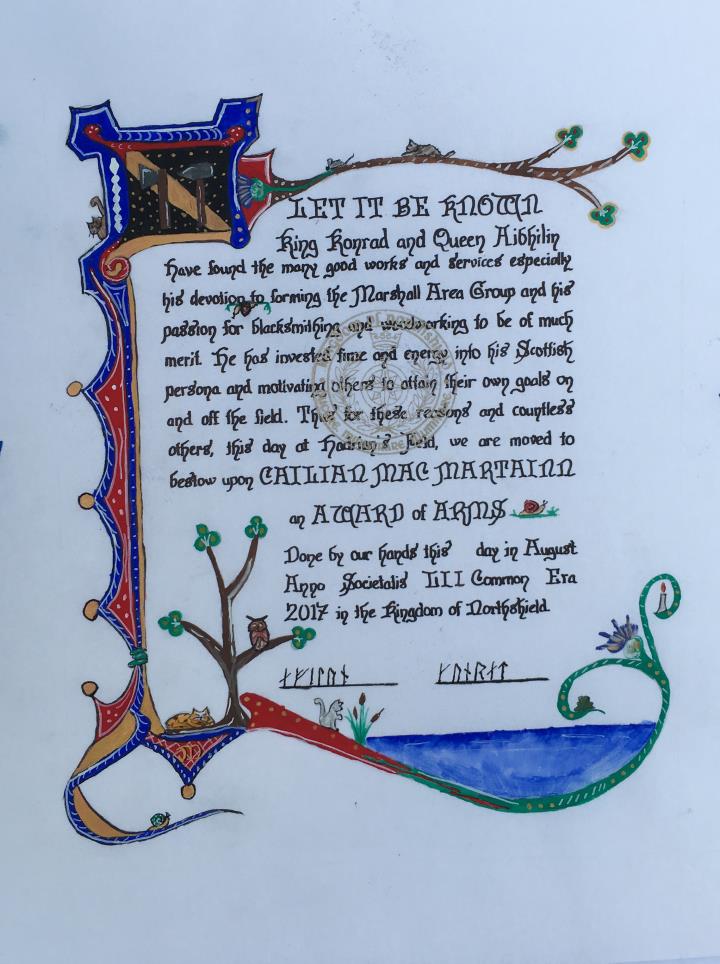 LET IT BE KNOWN
King Konrad and Queen Aibhilin
have found the many good works and services especially
his devotion to forming the Marshall Area Group and his
passion for blacksmithing and woodworking to be of much
merit. He has invested time and energy into his Scottish
persona and motivating others to attain their own goals on
and off the field. Thus for these reasons and countless
others, this day at Hadrian's Field, we are moved to
bestow upon CAILIAN MAC MARTAINN
an AWARD of ARMS
Done by our hands this day in August
Anno Societatis LII Common Era
2017 in the Kingdom of Northshield